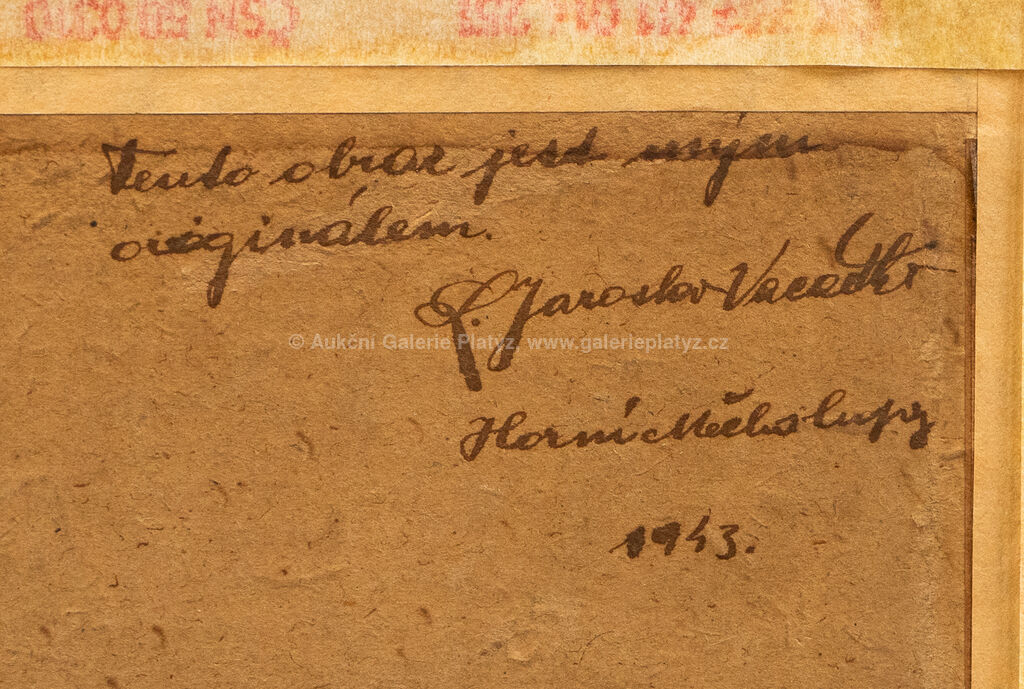 Tento obraz jest mým
originálem.
Jaroslav
© Aukční Galerie Platýz, www.galerieplatyz.cz
Horní Měcholupy
1943.